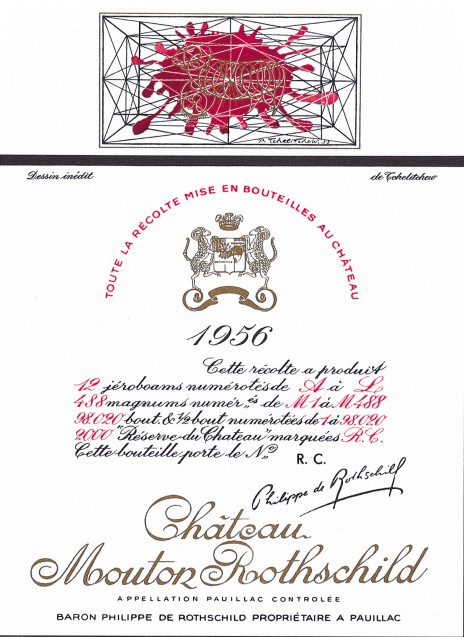 P. Tchelitchew. 53
Dessin inédit
de Tchelitchew
TOUTE LA RÉCOLTE MISE EN BOUTEILLES AU CHÂTEAU
1956
Cette récolte a produit
12 jéroboams numérotés de A à L,
488 magnums numér„és de M1 à M488
98.020 bout. & ½ bout numérotées de 1 à 98.020
2000 "Réserve du Château" marquées R.C.
Cette bouteille porte le Nº
R. C.
Philippe de Rothschild
Château
Mouton Rothschild
APPELLATION PAUILLAC CONTROLÉE
BARON PHILIPPE DE ROTHSCHILD PROPRIÉTAIRE A PAUILLAC